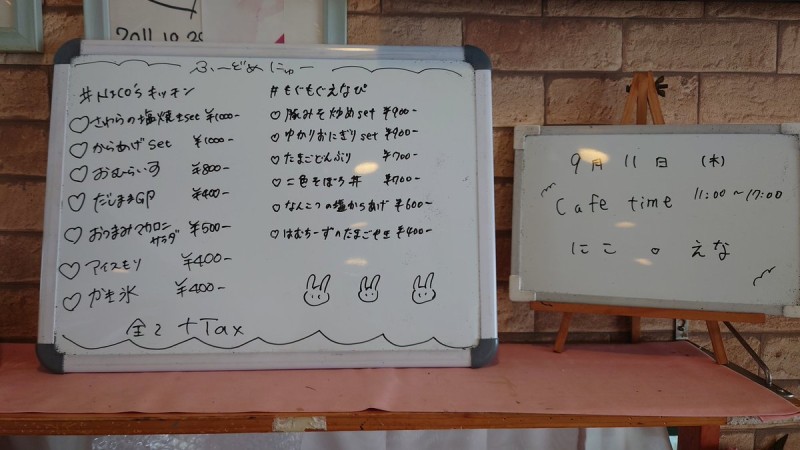 2011.10.29
ふーどめにゅー
#NicO'sキッチン
さわらの塩焼きset ¥1000-
からあげset ¥1000-
おむらいす ¥800-
だしまき ¥400-
おつまみマカロニ
サラダ ¥500-
アイスモリ ¥400-
かき氷 ¥400-
全て +Tax
#もぐもぐえなぴ
豚みそ炒めset ¥900-
ゆかりおにぎりset ¥900-
たまごどんぶり ¥700-
二色そぼろ丼 ¥700-
なんこつの塩からあげ ¥600-
はむちーずのたまごやき ¥400-
9月11日 (木)
Cafe time 11:00~17:00
にこ 。 えな